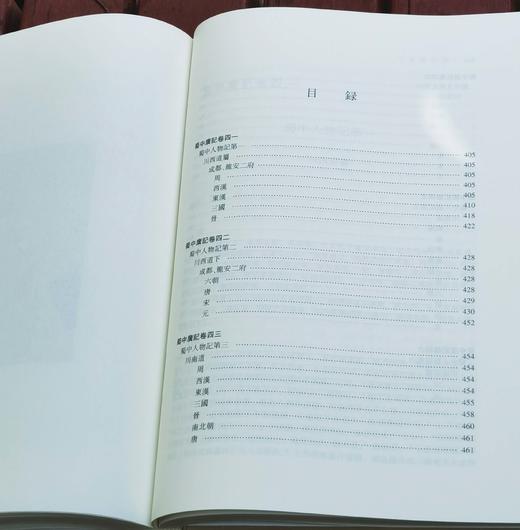 目　錄
蜀中廣記卷四一
蜀中人物記第一 …… 405
川西道屬 …… 405
成都、龍安二府 …… 405
周 …… 405
西漢 …… 405
東漢 …… 410
三國 …… 418
晉 …… 422
蜀中廣記卷四二
蜀中人物記第二 …… 428
川西道下 …… 428
成都、龍安二府 …… 428
六朝 …… 428
唐 …… 429
宋 …… 430
元 …… 452
蜀中廣記卷四三
蜀中人物記第三 …… 454
川南道 …… 454
周 …… 454
西漢 …… 454
東漢 …… 455
三國 …… 458
晉 …… 460
南北朝 …… 461
唐 …… 461